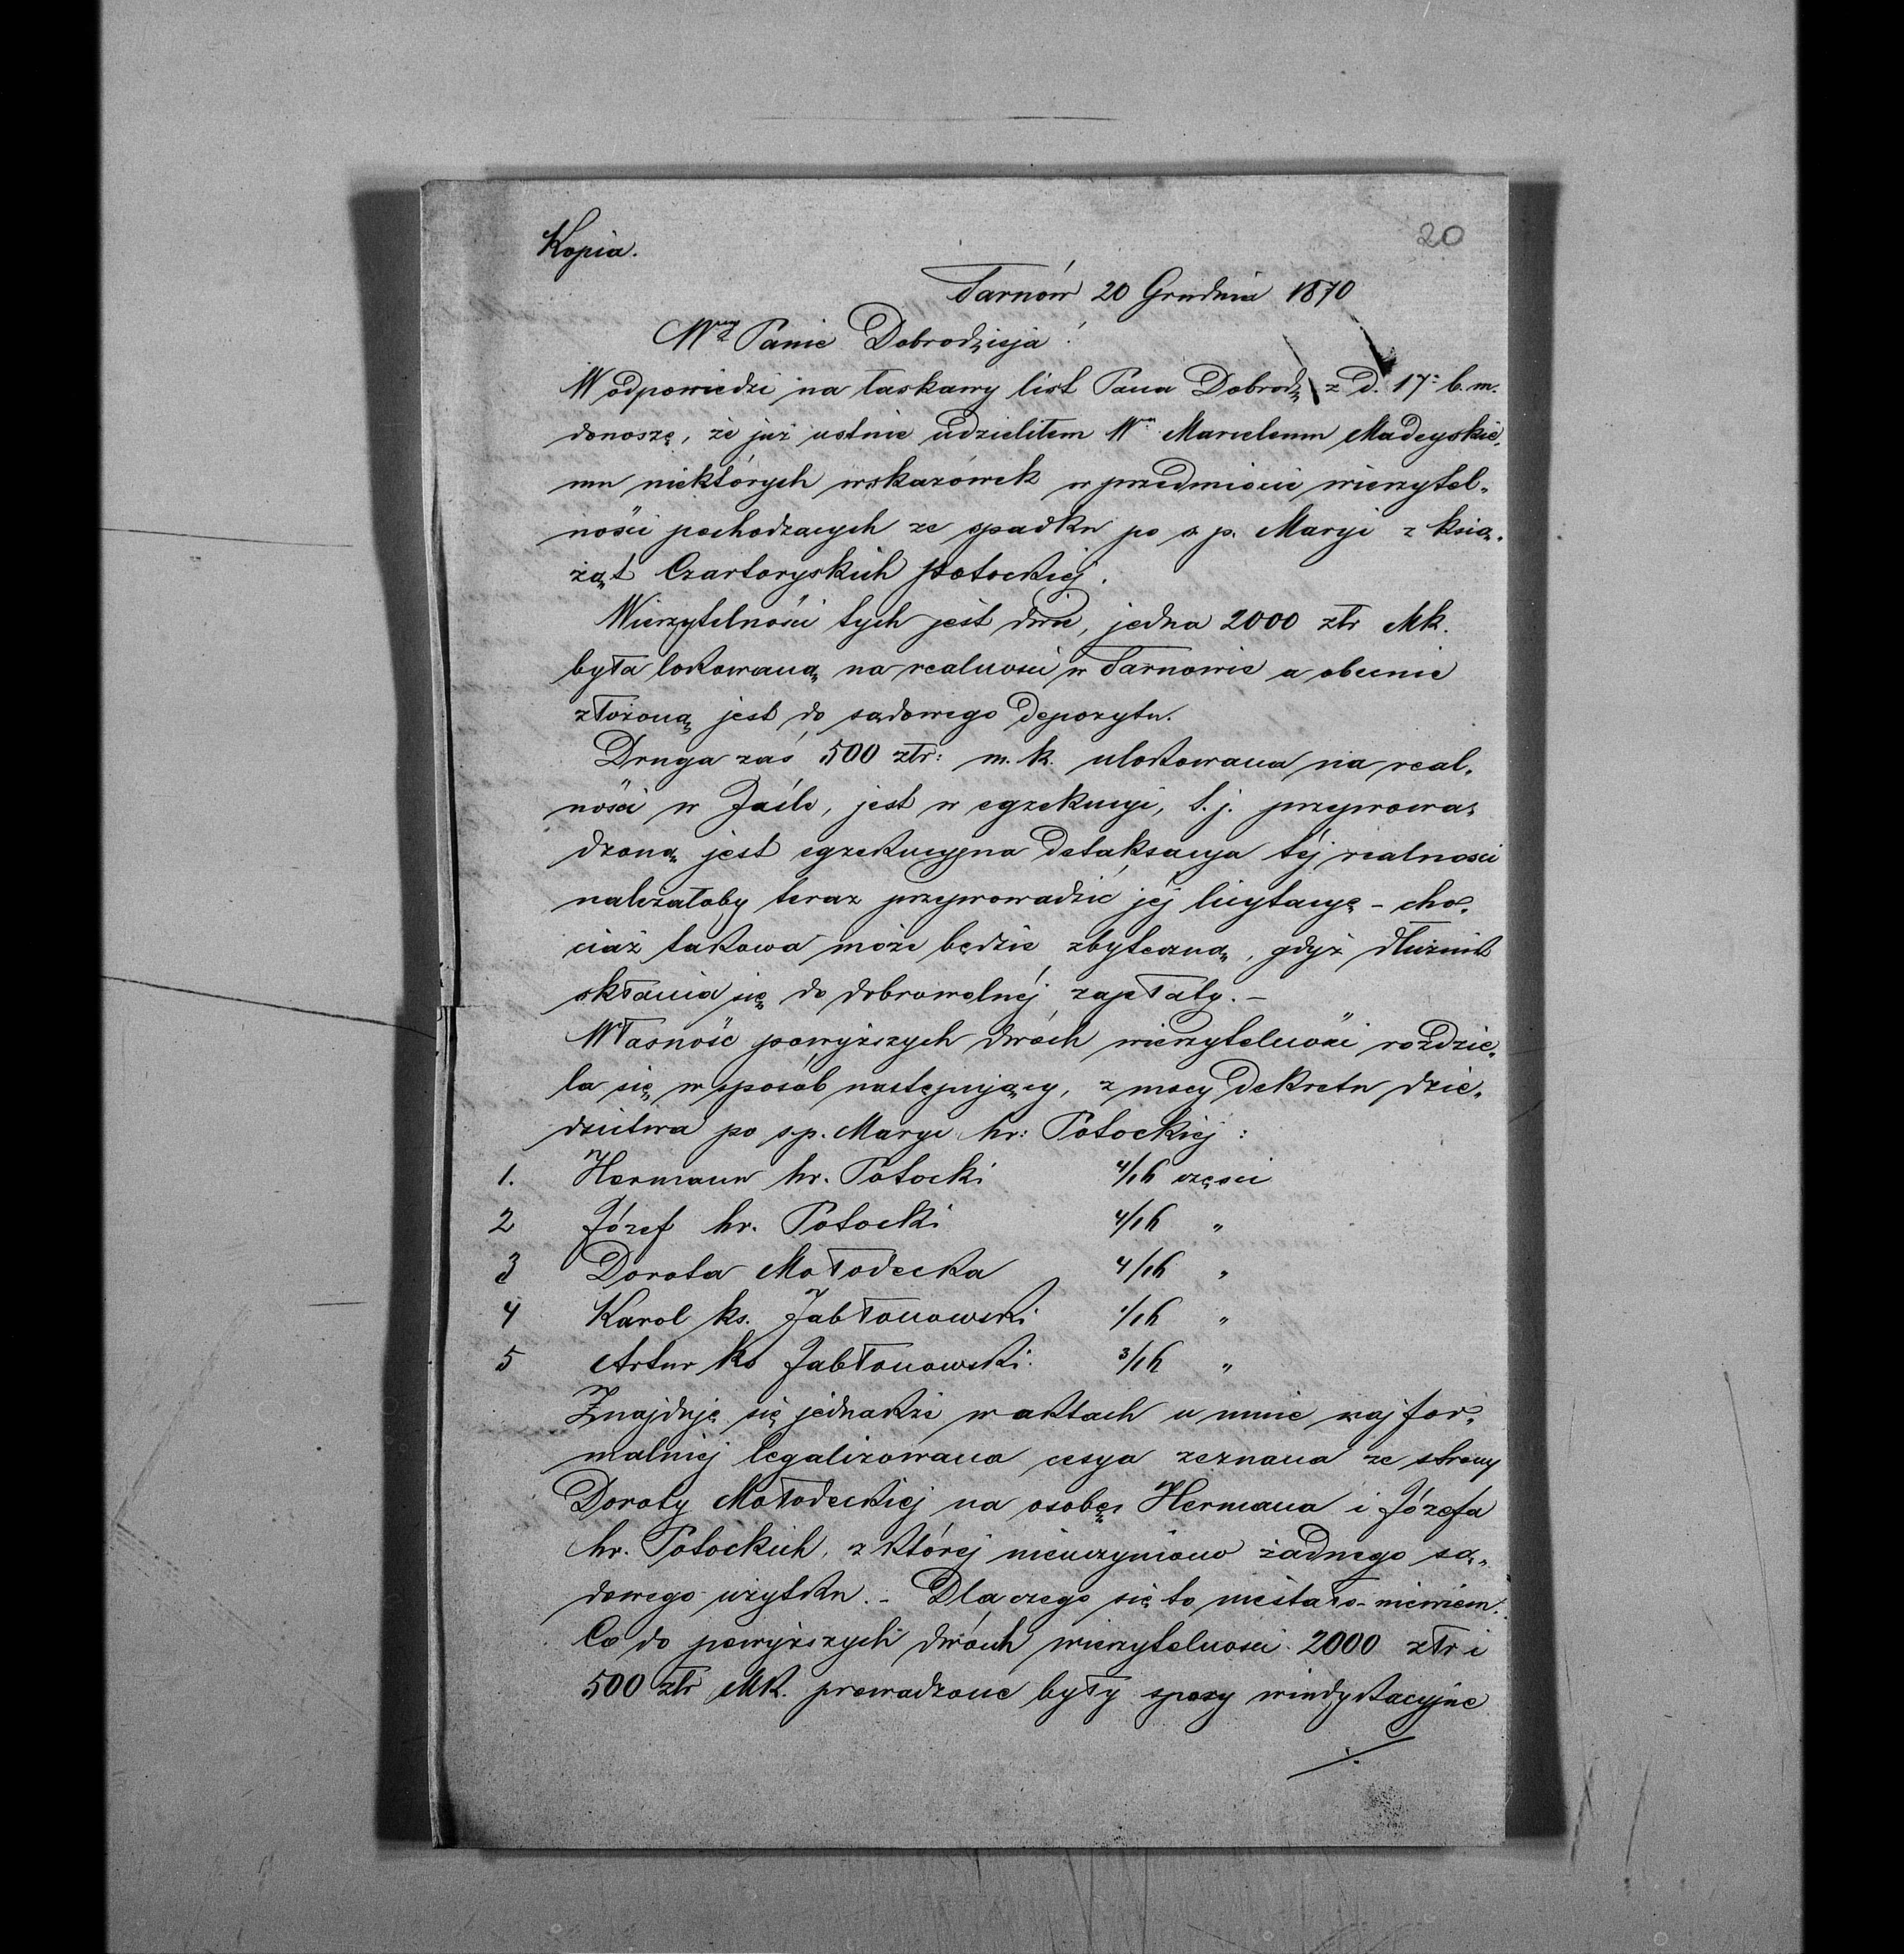 Kopia.
20
Tarnów 20 Grudnia 1870
Wny Panie Dobrodzieja!
W odpowiedzi na łaskawy list Pana Dobrodz z d. 17: b. m.
donoszę, że już ustnie udzieliłem Wm Marcelemu Madeyskie„
mu niektórych wskazówek w przedmiocie wierzytel„
ności pochodzących ze spadku po s. p. Maryi z ksią„
żąt Czartoryskich Potockiej.
Wierzytelności tych jest dwie, jedna 2000 złr Mk.
była lokowaną na realności w Tarnowie a obecnie
złożoną jest do sądowego depozytu.
Druga zaś 500 złr: m. k. ulokowana na real„
ności w Jaśle, jest w egzekucyi, t. j. przeprowa„
dzoną jest egzekucyjna detaksacya téj realności
należałoby teraz przeprowadzić jéj licytacyę – cho„
ciaż takowa może będzie zbyteczną, gdyż dłużnik
skłania się do dobrowolnéj zapłaty. –
Własność powyższych dwóch wierzytelności rozdzie„
la się w sposób następujący, z mocy dekretu dzie„
dzictwa po s.p. Maryi hr: Potockiej:
1. Hermann hr. Potocki 4/16 części
2 Józef hr. Potocki 4/16 „
3 Dorota Mołodecka 4/16 „
4 Karol ks. Jabłonowski 1/16 „
5 Artur ks Jabłonowski. 3/16 „
Znajduje się jednakże w aktach u mnie najfor„
malniej legalizowana cesya zeznana ze strony
Doroty Mołodeckiej na osobę Hermana i Józefa
hr. Potockich, z której nieuczyniono żadnego są„
dowego użytku. – Dla czego się to niestało – niewiem.
Co do powyższych dwóch wierzytelności 2000 złr i
500 złr Mk. prowadzone były spory windykacyjne
./.